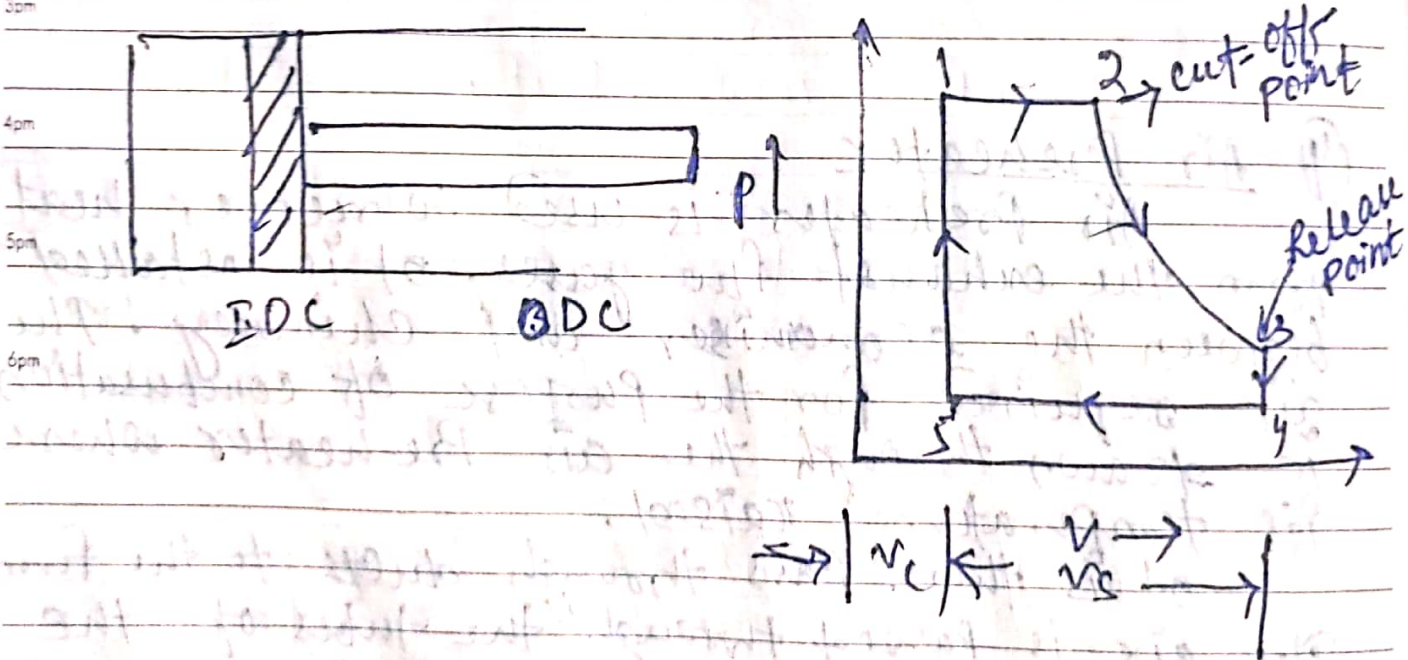 3pm
4pm
5pm
6pm
IDC
ODC
P
1
2 → cut-off point
Release point
3
4
5
V →
Vc
Vs